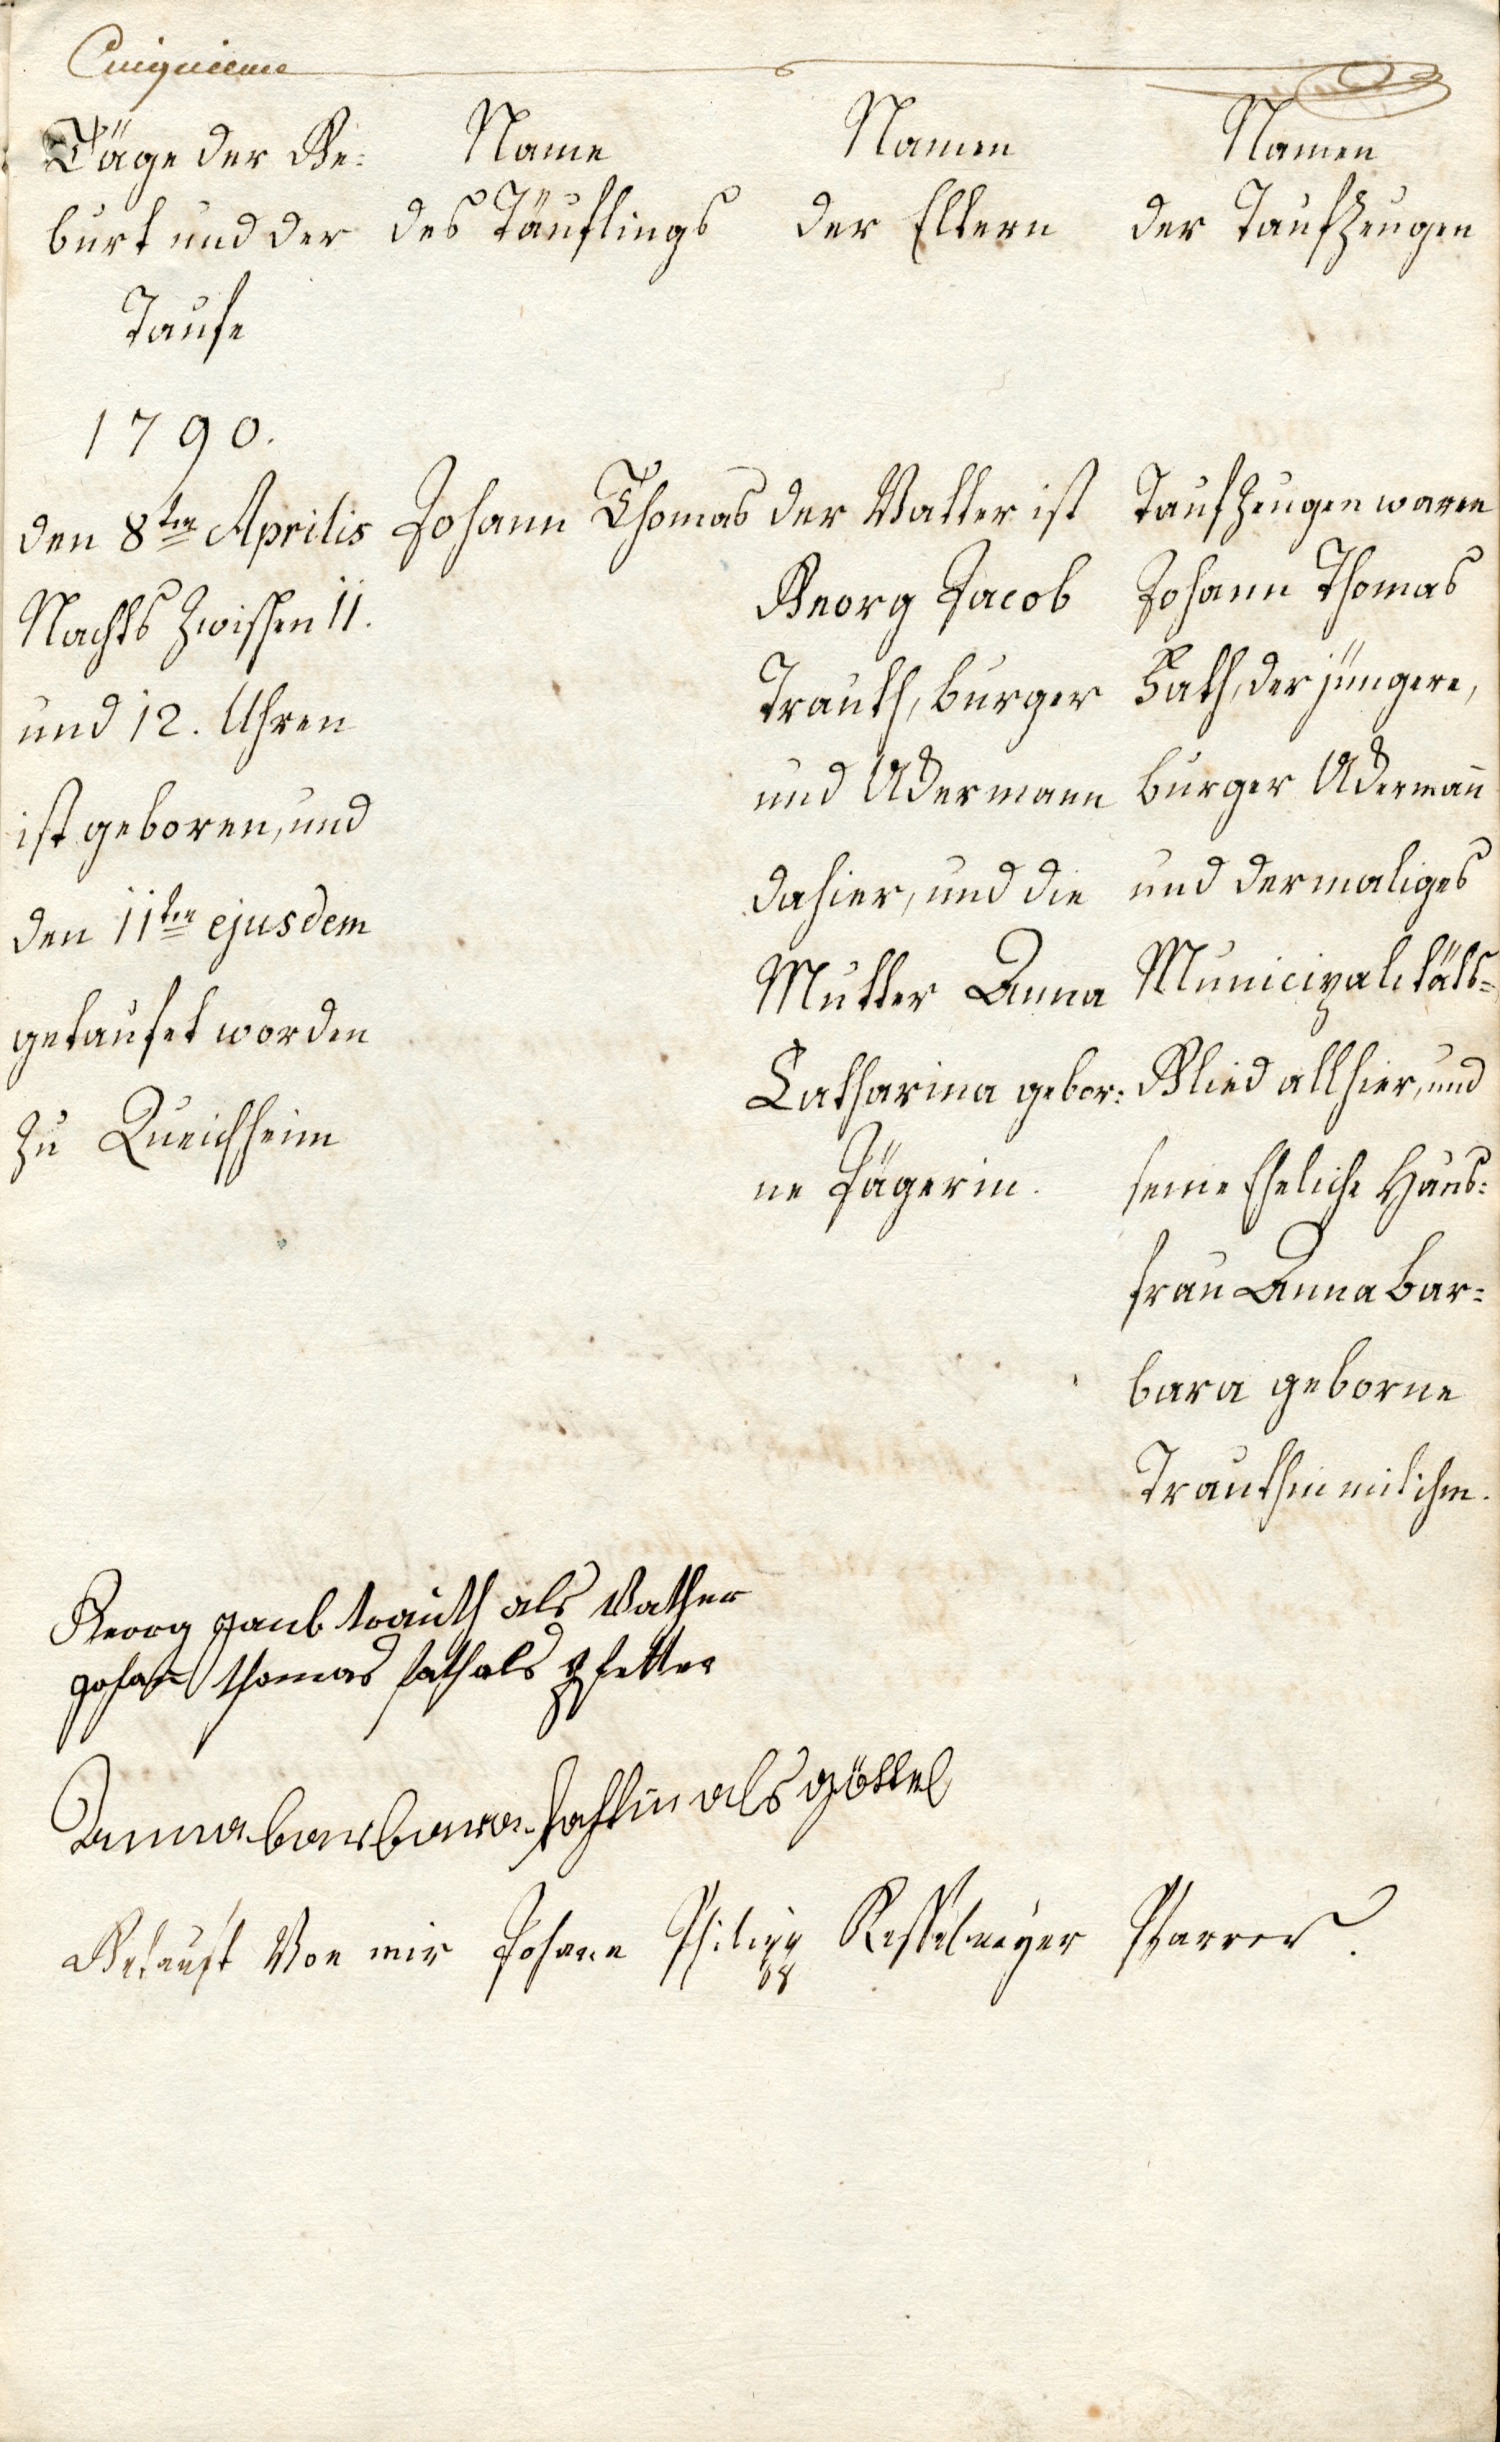 Cinquieme
Täge der Ge-
burt und der
Taufe
Name
des Täuflings
Namen
der Eltern
Namen
der Taufzeugen
1790.
den 8ten Aprilis
Nachts zwischen 11.
und 12. Uhren
ist geboren, und
den 11ten ejusdem
getaufet worden
zu Queichheim
Johann Thomas
der Vatter ist
Georg Jacob
Trauth, burger
und Ackermann
dahier, und die
Mutter Anna
Catharina gebor-
ne Jägerin.
Taufzeugen waren
Johann Thomas
Hath, der jüngere,
burger Ackermann
und dermaliges
Municipalitäts-
Glied allhier, und
seine Eheliche Haus-
frau Anna bar-
bara geborne
Trauthin mit ihm.
Georg Jacob trauth als Vather
Johan thomas hath als Pfetter
Anna barbara hathin als göttel
Getauft Von mir Johann Philipp Kesselmeyer Pfarrer.